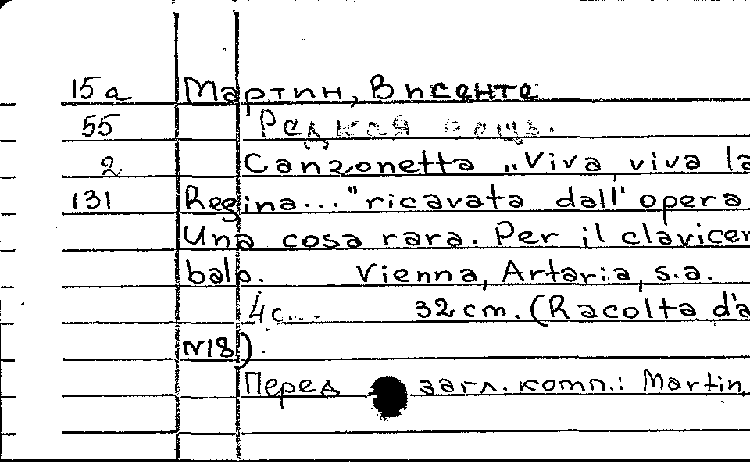 15а Мартин, Висенте
55 Редкая вещь.
2 Canzonetta „Viva, viva la
131 Regina..." ricavata dall' opera
Una cosa rara. Per il clavicem
balo. Vienna, Artaria, s.a.
4с... 32 cm. (Racolta d'a
N18).
Перед загл. комп.: Martin,